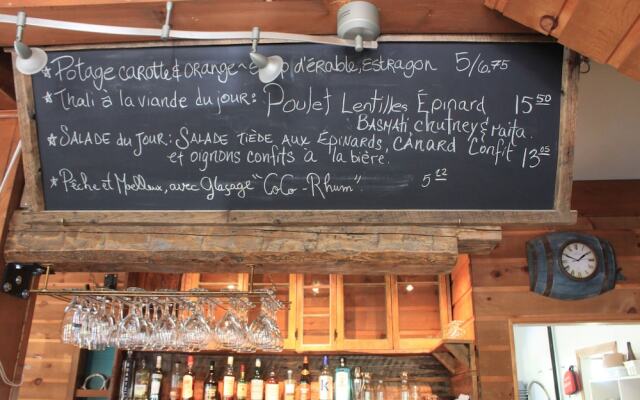 * Potage carotte & orange - d'érable, Estragon 5/6.75
* Thali à la viande du jour: Poulet Lentilles Épinard 15 50
Basmati, chutney & Raita.
* Salade du Jour: Salade tiède aux Épinards, canard Confit 13 05
et oignons confits à la bière.
* Pêche et Moelleux, avec Glaçage "CoCo-Rhum". 5 12